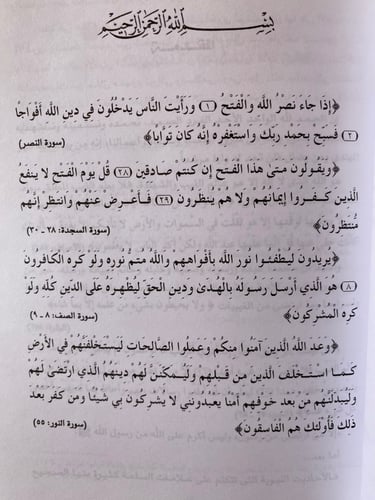 بسم الله الرحمن الرحيم
﴿إذا جاء نصر الله والفتح (١) ورأيت الناس يدخلون في دين الله أفواجا
(٢) فسبح بحمد ربك واستغفره إنه كان توابا﴾ (سورة النصر)
﴿ويقولون متى هذا الفتح إن كنتم صادقين (٢٨) قل يوم الفتح لا ينفع
الذين كفروا إيمانهم ولا هم ينظرون (٢٩) فأعرض عنهم وانتظر إنهم
منتظرون﴾ (سورة السجدة: ٢٨ - ٣٠)
﴿يريدون ليطفئوا نور الله بأفواههم والله متم نوره ولو كره الكافرون
(٨) هو الذي أرسل رسوله بالهدى ودين الحق ليظهره على الدين كله ولو
كره المشركون﴾ (سورة الصف: ٨ - ٩)
﴿وعد الله الذين آمنوا منكم وعملوا الصالحات ليستخلفنهم في الأرض
كما استخلف الذين من قبلهم وليمكنن لهم دينهم الذي ارتضى لهم
وليبدلنهم من بعد خوفهم أمنا يعبدونني لا يشركون بي شيئا ومن كفر بعد
ذلك فأولئك هم الفاسقون﴾ (سورة النور: ٥٥)